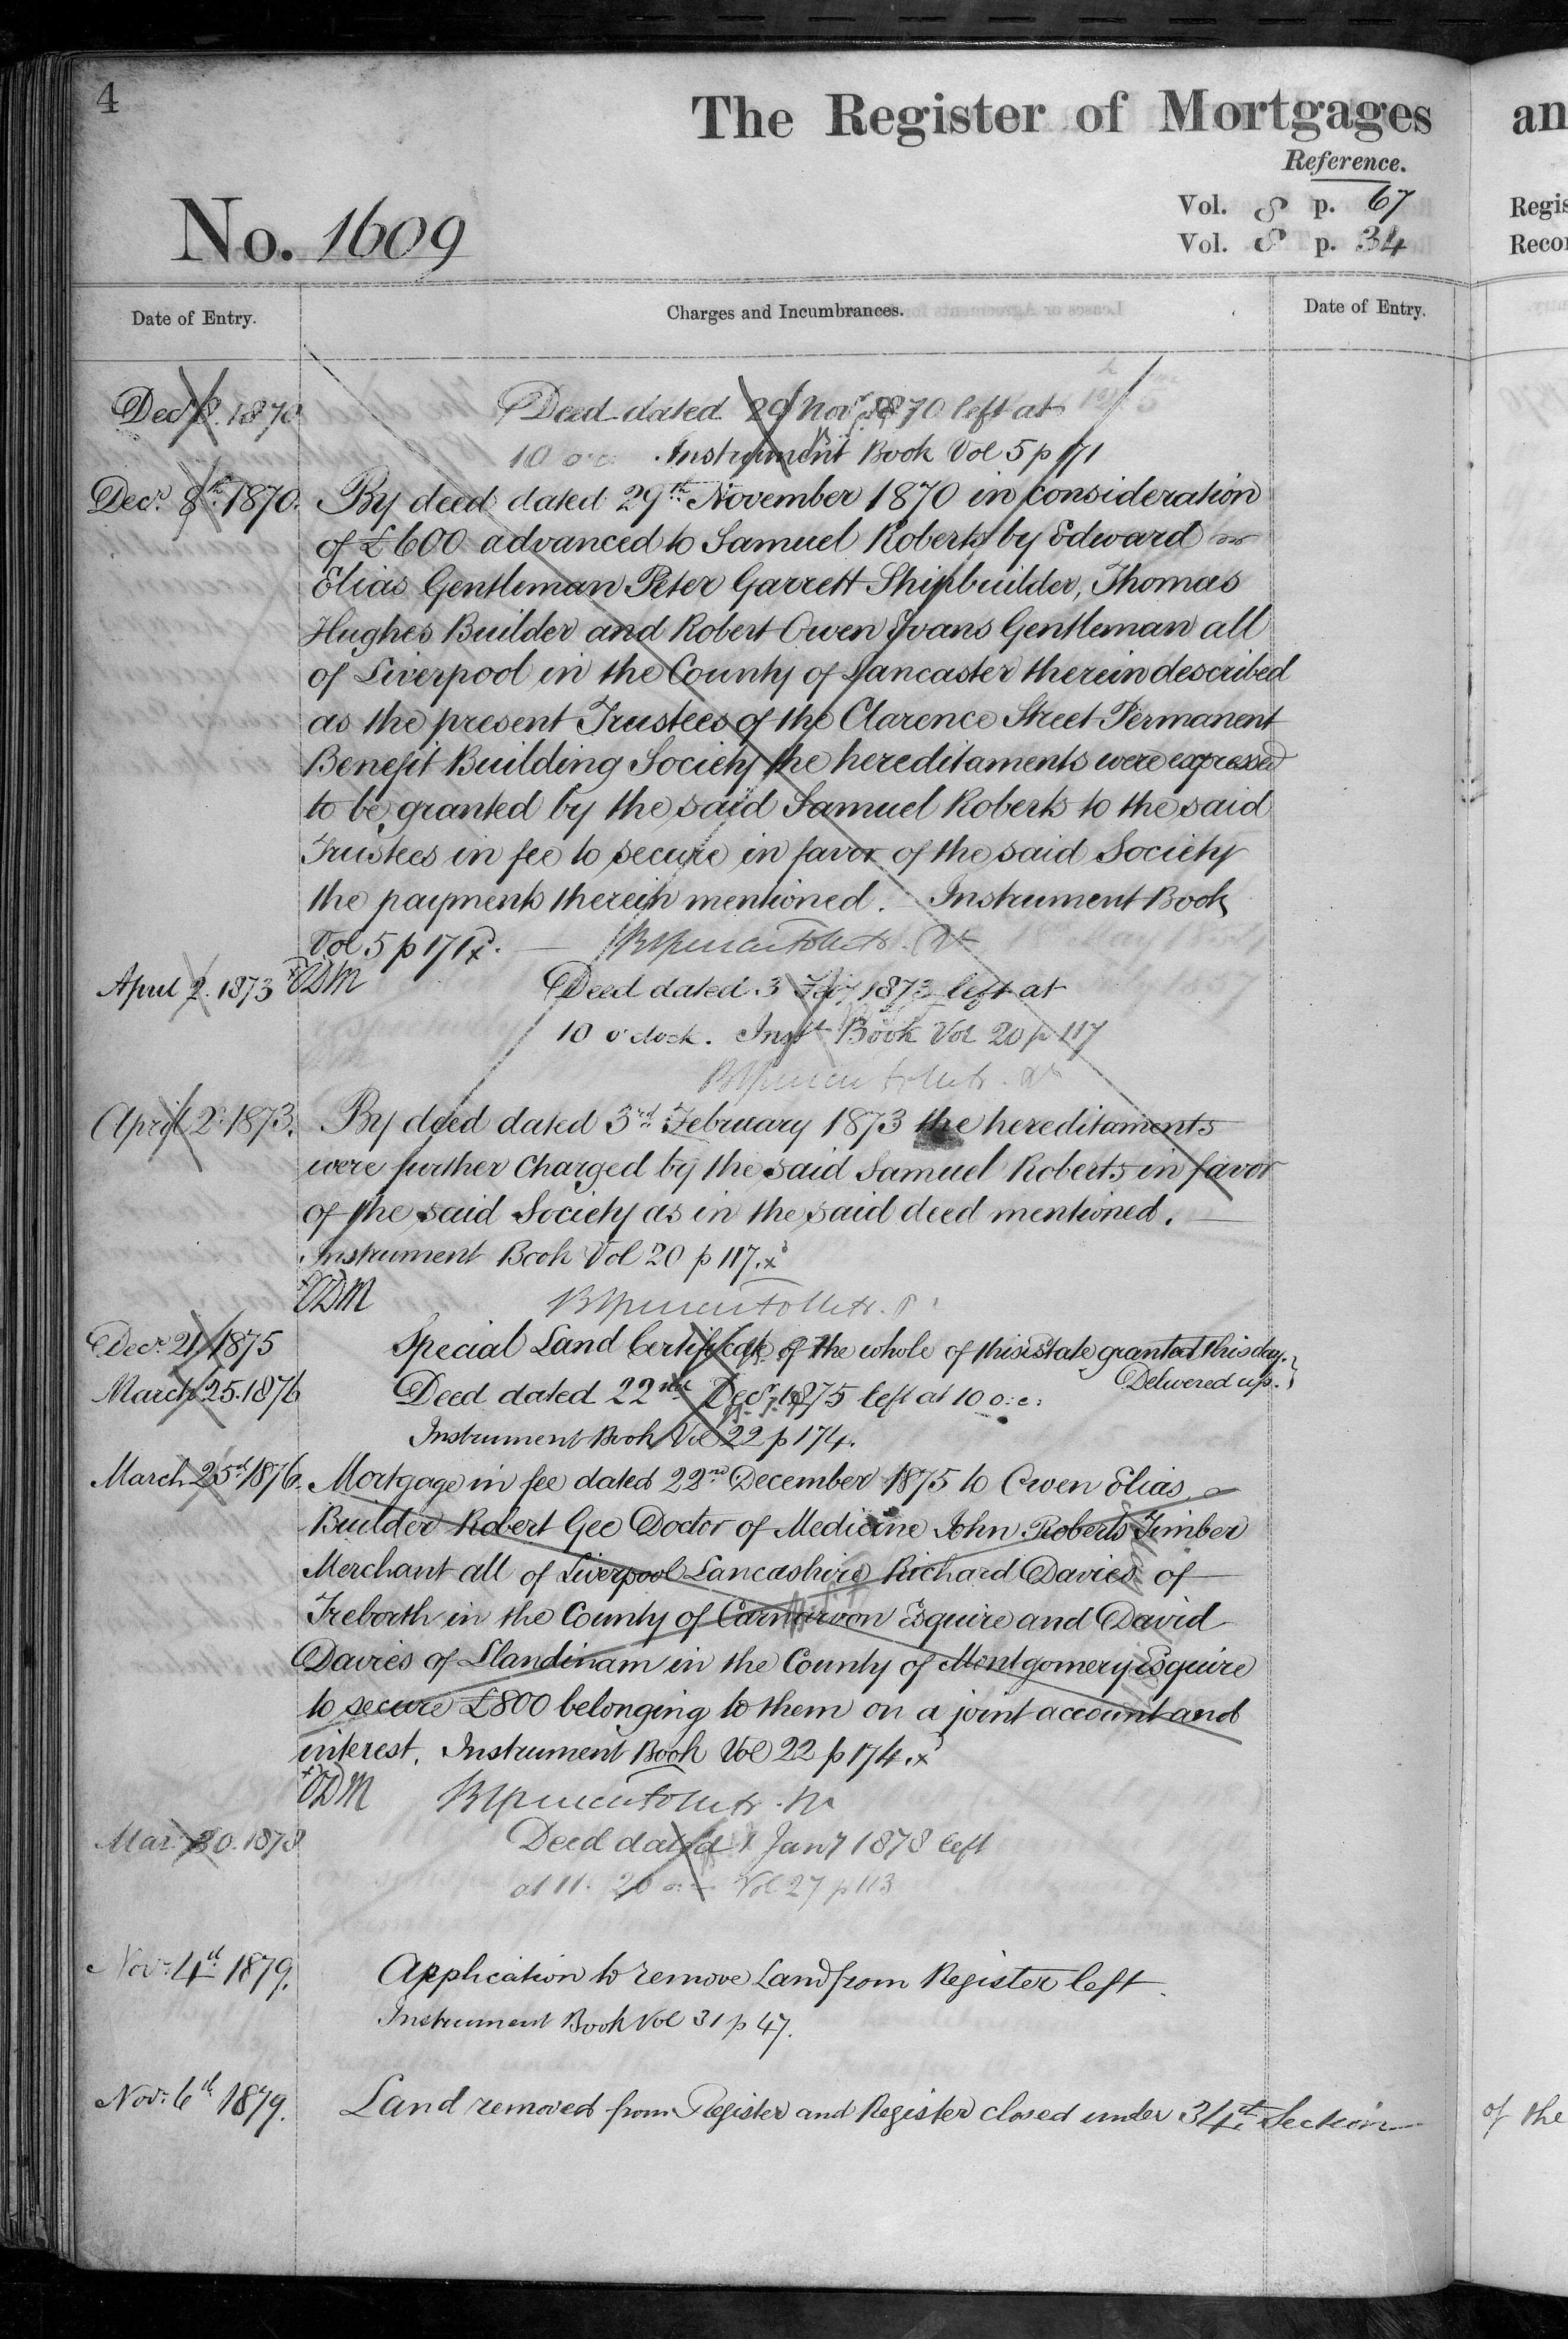 4
The Register of Mortgages
an
Reference.
No. 1609
Vol. 8 p. 67
Regis
Vol. 8 p. 34
Recor
Date of Entry.
Charges and Incumbrances.
Date of Entry.
Decr 8. 1870
Deed dated 29 Novr 1870 left at
10 o.c. Instrument Book Vol 5 p 171
Decr. 8th. 1870.
By deed dated 29th November 1870 in consideration
of £600 advanced to Samuel Roberts by Edward
Elias Gentleman Peter Garrett Shipbuilder, Thomas
Hughes Builder and Robert Owen Evans Gentleman all
of Liverpool in the County of Lancaster therein described
as the present Trustees of the Clarence Street Permanent
Benefit Building Society the hereditaments were expressed
to be granted by the said Samuel Roberts to the said
Trustees in fee to secure in favor of the said Society
the payments therein mentioned. Instrument Book
Vol 5 p 171 x.
April 2. 1873
Deed dated 3 Feby 1873 left at
10 o'clock. Inst Book Vol 20 p 117
April 2d. 1873.
By deed dated 3rd. February 1873 the hereditaments
were further charged by the said Samuel Roberts in favor
of the said Society as in the said deed mentioned.
Instrument Book Vol 20 p 117. x
Decr. 21. 1875
Special Land Certificate of the whole of this estate granted this day.
Delivered up.
March 25. 1876
Deed dated 22nd Decr 1875 left at 10 o.c.
Instrument Book Vol 22 p 174.
March 25th 1876.
Mortgage in fee dated 22nd December 1875 to Owen Elias
Builder Robert Gee Doctor of Medicine John Roberts Timber
Merchant all of Liverpool Lancashire Richard Davies of
Treborth in the County of Carnarvon Esquire and David
Davies of Llandinam in the County of Montgomery Esquire
to secure £800 belonging to them on a joint account and
interest. Instrument Book Vol 22 p 174. x
Mar. 20. 1878
Deed dated 1 Jany 1878 left
at 11. 20 Vol 27 p 113
Novr. 4th 1879.
Application to remove Land from Register left.
Instrument Book Vol 31 p 47.
Novr. 6th 1879.
Land removed from Register and Register closed under 34th Section
of the